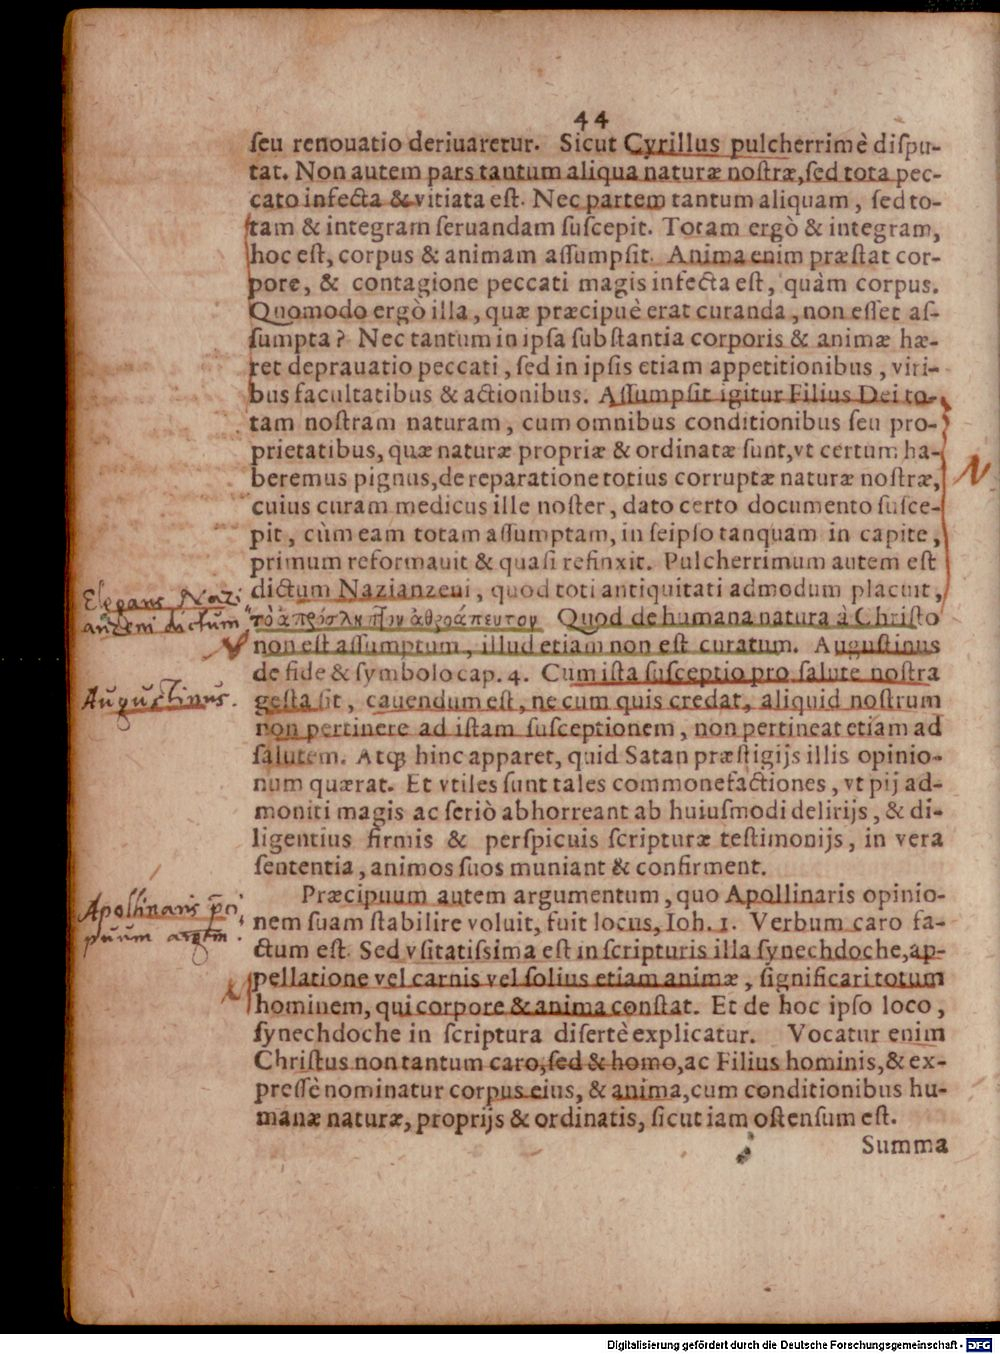 44
ſeu renouatio deriuaretur. Sicut Cyrillus pulcherrimè diſpu-
tat. Non autem pars tantum aliqua naturæ noſtræ, ſed tota pec-
cato infecta & vitiata eſt. Nec partem tantum aliquam, ſed to-
tam & integram ſeruandam ſuſcepit. Totam ergò & integram,
hoc eſt, corpus & animam aſſumpſit. Anima enim præſtat cor-
pore, & contagione peccati magis infecta eſt, quàm corpus.
Quomodo ergò illa, quæ præcipuè erat curanda, non eſſet aſ-
ſumpta? Nec tantum in ipſa ſubſtantia corporis & animæ hæ-
ret deprauatio peccati, ſed in ipſis etiam appetitionibus, viri-
bus facultatibus & actionibus. Aſſumpſit igitur Filius Dei to-
tam noſtram naturam, cum omnibus conditionibus ſeu pro-
prietatibus, quæ naturæ propriæ & ordinatæ ſunt, vt certum ha-
beremus pignus, de reparatione totius corruptæ naturæ noſtræ,
cuius curam medicus ille noſter, dato certo documento ſuſce-
pit, cùm eam totam aſſumptam, in ſeipſo tanquam in capite,
primum reformauit & quaſi refinxit. Pulcherrimum autem eſt
dictum Nazianzeni, quod toti antiquitati admodum placuit,
Elegans Nazi
anzeni dictum
τὸ ἀπρόσληπῖον ἀθεράπευτον Quod de humana natura à Chriſto
non eſt aſſumptum, illud etiam non eſt curatum. Auguſtinus
de fide & ſymbolo cap. 4. Cum iſta ſuſceptio pro ſalute noſtra
Augustinus.
geſta ſit, cauendum eſt, ne cum quis credat, aliquid noſtrum
non pertinere ad iſtam ſuſceptionem, non pertineat etiam ad
ſalutem. Atq; hinc apparet, quid Satan præſtigijs illis opinio-
num quærat. Et vtiles ſunt tales commonefactiones, vt pij ad-
moniti magis ac ſeriò abhorreant ab huiuſmodi delirijs, & di-
ligentius firmis & perſpicuis ſcripturæ teſtimonijs, in vera
ſententia, animos ſuos muniant & confirment.
Præcipuum autem argumentum, quo Apollinaris opinio-
Apollinaris p̄ci
puum argm̄.
nem ſuam ſtabilire voluit, fuit locus, Ioh. 1. Verbum caro fa-
ctum eſt. Sed vſitatiſsima eſt in ſcripturis illa ſynechdoche, ap-
pellatione vel carnis vel ſolius etiam animæ, ſignificari totum
hominem, qui corpore & anima conſtat. Et de hoc ipſo loco,
ſynechdoche in ſcriptura diſertè explicatur. Vocatur enim
Chriſtus non tantum caro, ſed & homo, ac Filius hominis, & ex-
preſſè nominatur corpus eius, & anima, cum conditionibus hu-
manæ naturæ, proprijs & ordinatis, ſicut iam oſtenſum eſt.
Summa
Digitalisierung gefördert durch die Deutsche Forschungsgemeinschaft - DFG